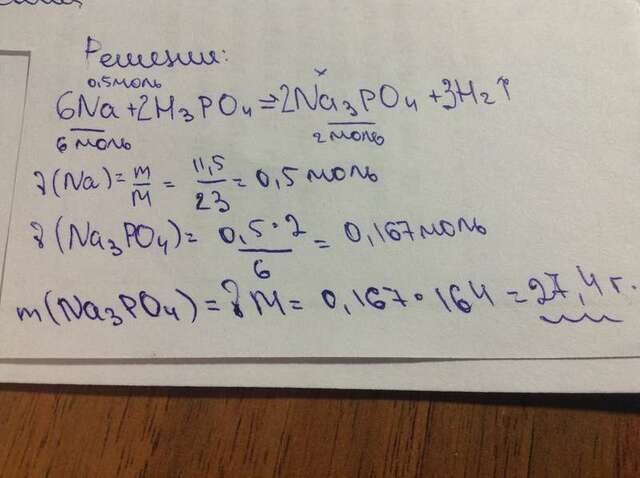 Решение:
0,5 моль x
6Na + 2H₃PO₄ = 2Na₃PO₄ + 3H₂↑
6 моль 2 моль
ν(Na) = m/M = 11,5/23 = 0,5 моль
ν(Na₃PO₄) = 0,5·2/6 = 0,167 моль
m(Na₃PO₄) = νM = 0,167·164 = 27,4 г.